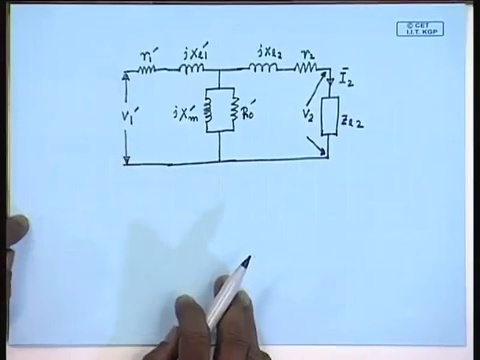 © CET
I.I.T. KGP
r₁' jXℓ₁' jXℓ₂ r₂
Ī₂
V₁' jXₘ' R₀' V₂ Zℓ₂